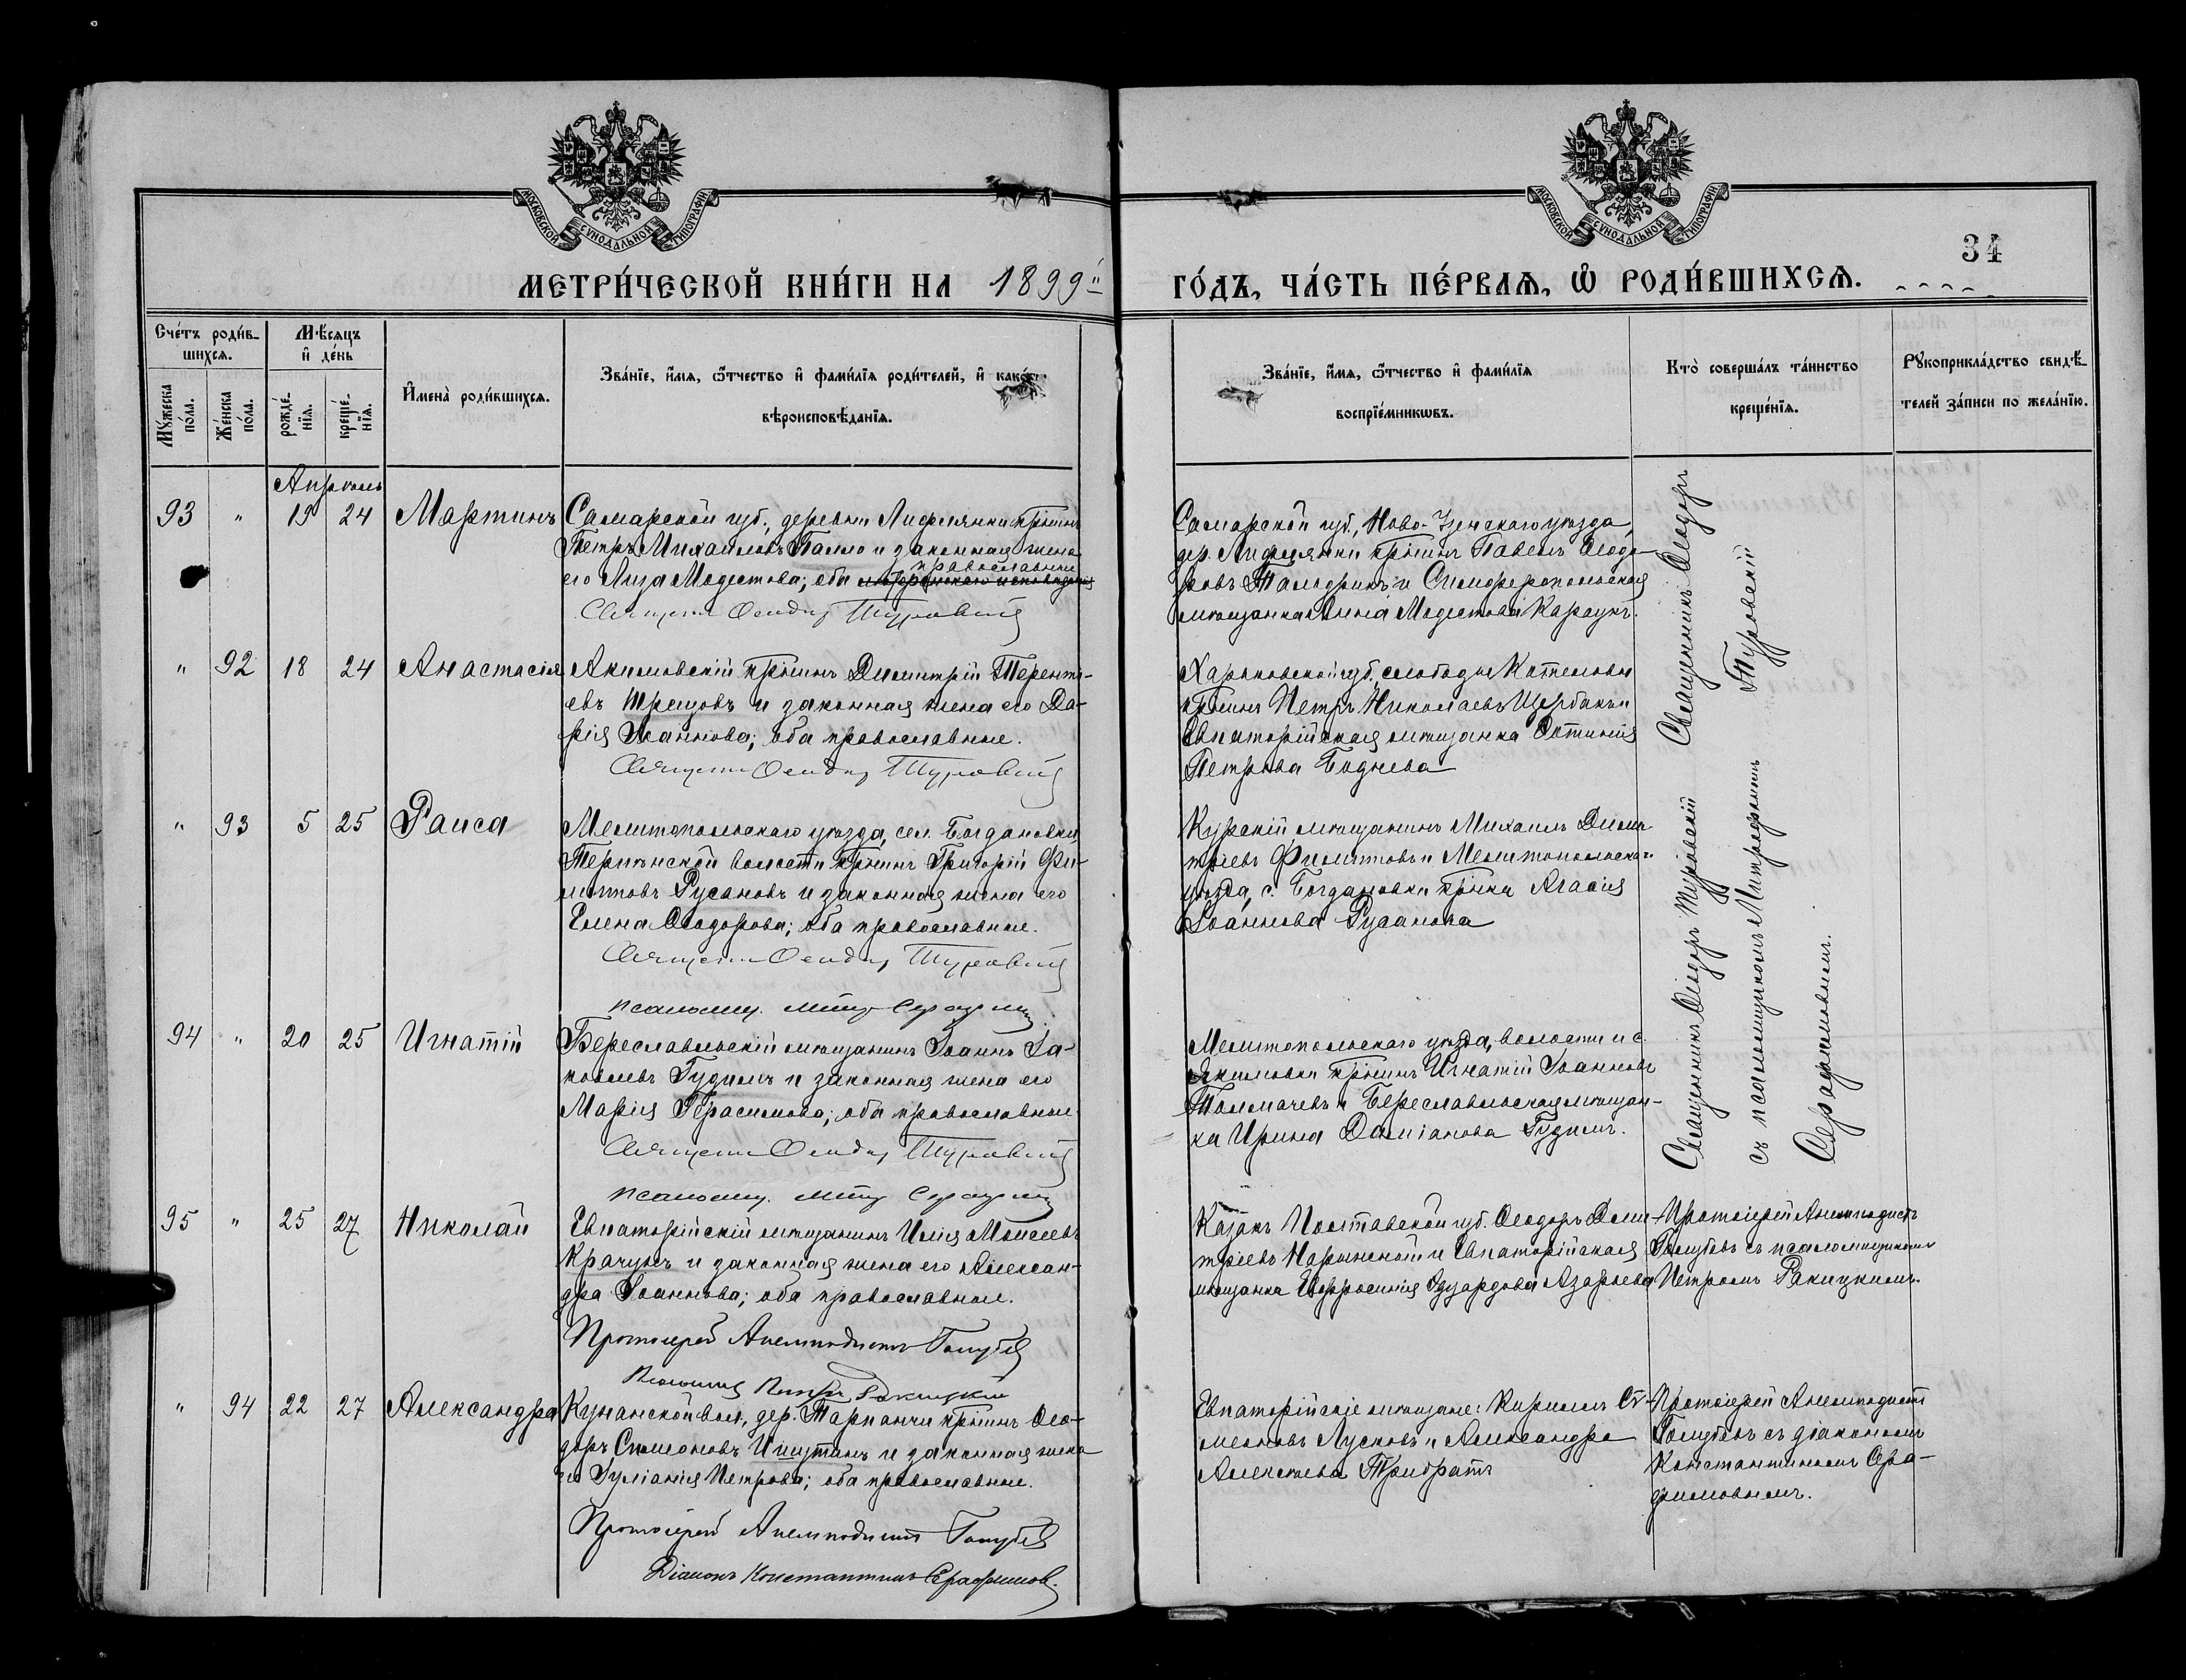 МОСКОВСКОЙ СѴНОДАЛЬНОЙ ТИПОГРАФІИ
МОСКОВСКОЙ СѴНОДАЛЬНОЙ ТИПОГРАФІИ
34
МЕТРИ́ЧЕСКОЙ КНИ́ГИ НА 1899й ГО́ДЪ, ЧА́СТЬ ПЕ́РВАѦ, Ѡ҆ РОДИ́ВШИХСѦ.
Сче́тъ роди́в-
шихсѧ.
Мꙋ́жеска по́ла.
Же́нска по́ла.
Мѣ́сѧцъ
и҆ де́нь
рожде́-
нїѧ.
креще́-
нїѧ.
И҆мена̀ роди́вшихсѧ.
Зва́нїе, и҆́мѧ, ѻ҆́тчество и҆ фами́лїѧ роди́телей, и҆ како́гѡ
вѣроисповѣ́данїѧ.
Зва́нїе, и҆́мѧ, ѻ҆́тчество и҆ фами́лїѧ
воспрїе́мникѡвъ.
Кто̀ соверша́лъ та́инство
креще́нїѧ.
Рꙋкоприкла́дство свидѣ́-
телей за́писи по жела́нїю.
Апрѣль
93 " 19 24 Мартинъ
Самарской губ., деревни Лифлянки кр҃нинъ
Петръ Михаиловъ Палло и законная жена
его Лиза Модестова; оба православные
Священ Ѳеодоръ Туровскій
Самарской губ., Ново-Узенскаго уѣзда,
дер. Лифлянки кр҃нинъ Павелъ Ѳеодо-
ровъ и Симферопольская
мѣщанка Анна Модестова
Священникъ Ѳеодоръ
Туровскій
" 92 18 24 Анастасія
Акимовскій кр҃нинъ Димитрій Теренті-
евъ Трецовъ и законная жена его Да-
рія Іоаннова; оба православные.
Священ Ѳеодоръ Туровскій
Харьковской губ., слободы Котельвы
кр҃нинъ Петръ Николаевъ Щербакъ и
Евпаторійская мѣщанка
Петрова Боднева
" 93 5 25 Раиса
Мелитопольскаго уѣзда, сел. Богдановки,
Терпѣнской волости кр҃нинъ Григорій Фи-
липповъ Русановъ и законная жена его
Елена Ѳеодорова; оба православные.
Священ Ѳеодоръ Туровскій
псаломщ. Митр Серафим
Курскій мѣщанинъ Михаилъ Дими-
тріевъ Филипповъ и Мелитопольскаго
уѣзда, с. Богдановки кр҃нка Агасія
Іоаннова Русанова
Священникъ Ѳеодоръ Туровскій
съ псаломщикомъ Митрофаномъ
Серафимовымъ.
94 " 20 25 Игнатій
Береславльскій мѣщанинъ Іоаннъ Іа-
ковлевъ Гудимъ и законная жена его
Марія Герасимова; оба православные
Священ Ѳеодоръ Туровскій
псаломщ. Митр Серафим
Мелитопольскаго уѣзда, волости и с.
Акимовки кр҃нинъ Игнатій Іоанновъ
Толмачевъ и Береславльская мѣщан-
ка Ирина Даміанова Гудимъ.
95 " 25 27 Николай
Евпаторійскій мѣщанинъ Илія Моисеевъ
Крачунъ и законная жена его Алексан-
дра Іоаннова; оба православные.
Протоіерей Анемподистъ Голубевъ
Псаломщ Петръ Ракицкій
Казакъ Полтавской губ. Ѳеодоръ Дими-
тріевъ и Евпаторійская
мѣщанка Евфросинія Эдуардова Азарьева
Протоіерей Анемподистъ
Голубевъ съ псаломщикомъ
Петромъ Ракицкимъ.
" 94 22 27 Александра
Кунанской вол., дер. Тарпанчи кр҃нинъ Ѳео-
доръ Симеоновъ Ишутинъ и законная жена
его Іуліанія Петрова; оба православные.
Протоіерей Анемподистъ Голубевъ
Діаконъ Константинъ Серафимов.
Евпаторійскіе мѣщане: Кириллъ Си-
меоновъ Лусковъ и Александра
Алексѣева Трибратъ
Протоіерей Анемподистъ
Голубевъ съ діакономъ
Константиномъ Сера-
фимовымъ.